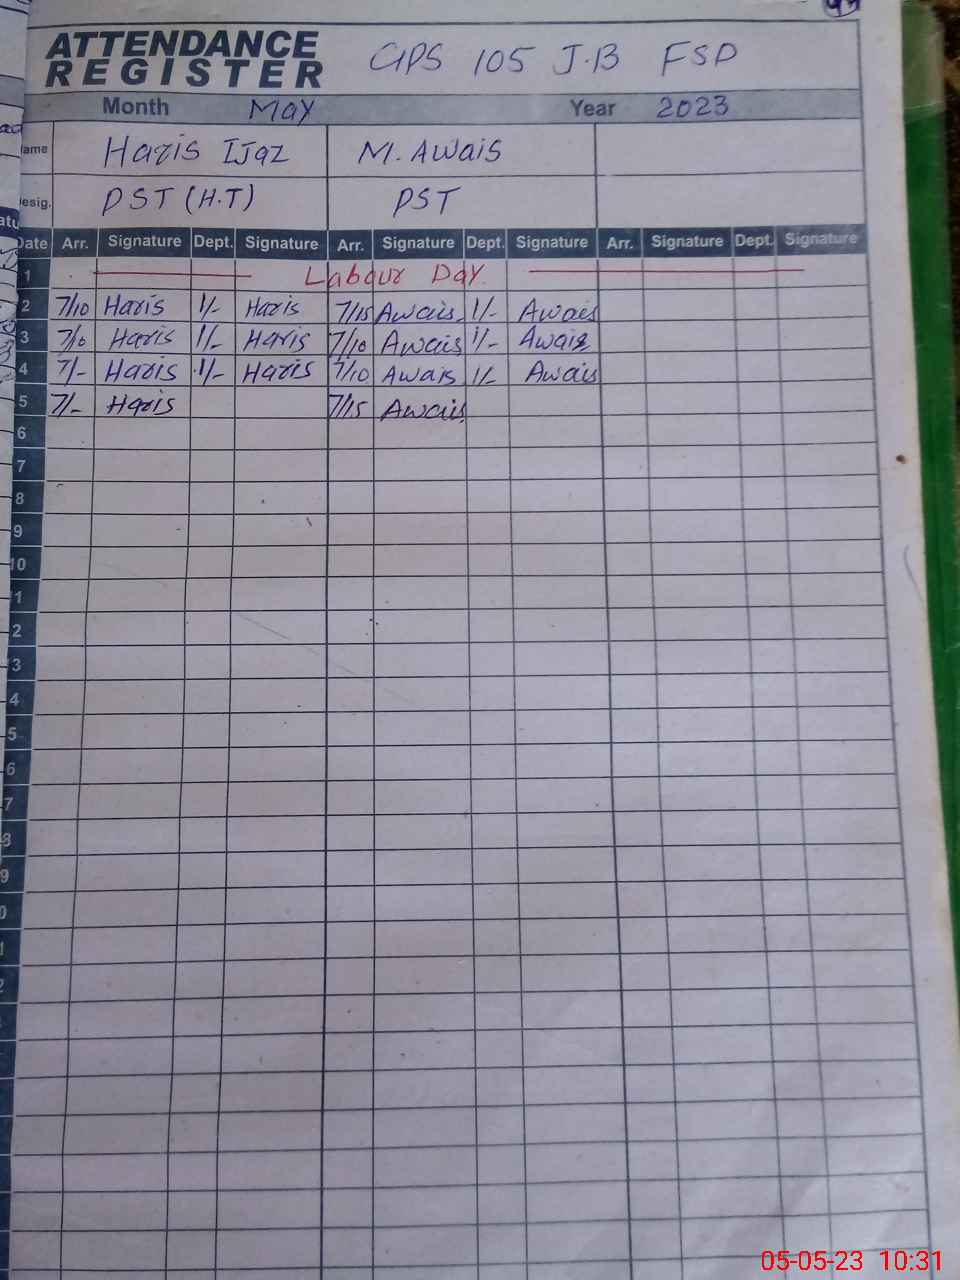 ATTENDANCE
REGISTER
GPS 105 J.B FSD
Month May Year 2023
ame Haris Ijaz M. Awais
esig. PST (H.T) PST
Date Arr. Signature Dept. Signature Arr. Signature Dept. Signature Arr. Signature Dept. Signature
1 Labour Day
2 7/10 Haris 1/- Haris 7/15 Awais 1/- Awais
3 7/10 Haris 1/- Haris 7/10 Awais 1/- Awais
4 7/- Haris 1/- Haris 7/10 Awais 1/- Awais
5 7/- Haris 7/15 Awais
6
7
8
9
10
1
2
3
4
5
6
7
8
9
0
1
2
05-05-23 10:31